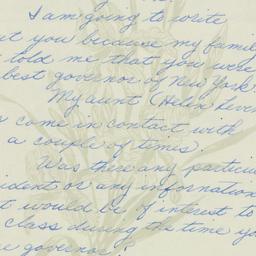 I am going to write
ut you because my famil
told me that you were
best governor of New York
My aunt (Helen
come in contact with
a couple of times.
Was there any particu
ident or any information
t would be of interest to
class during the time yo
e governor?